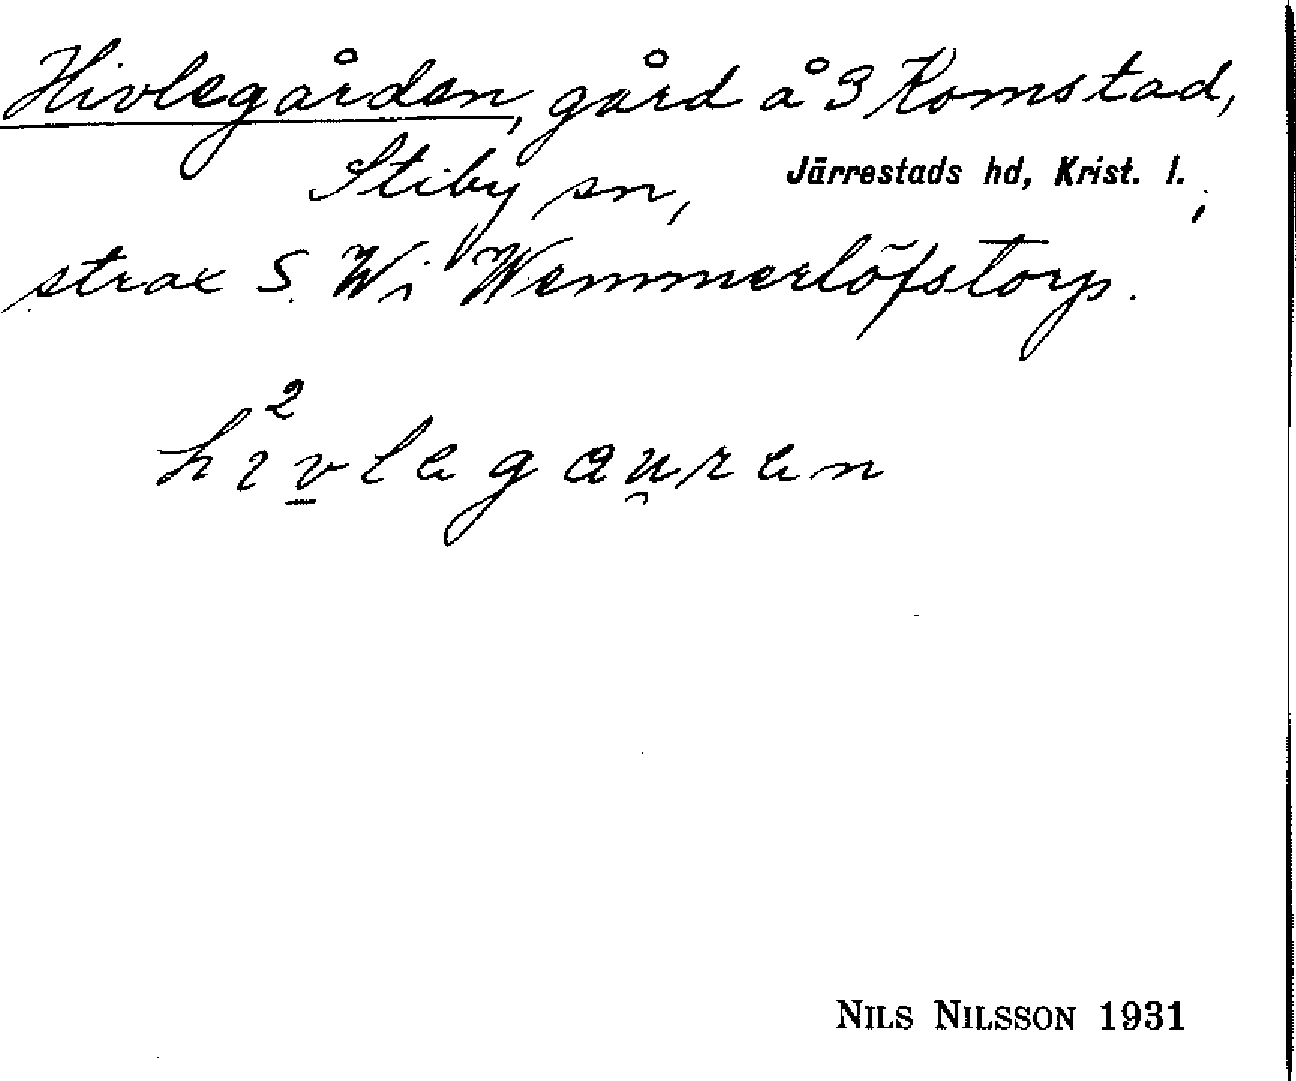 Hivlegården, gård å 3 Komstad,
Stiby sn, Järrestads hd, Krist. l. ;
strax S. Wi Wemmerlöfstorp.
2
hivlegau̯ren
NILS NILSSON 1931